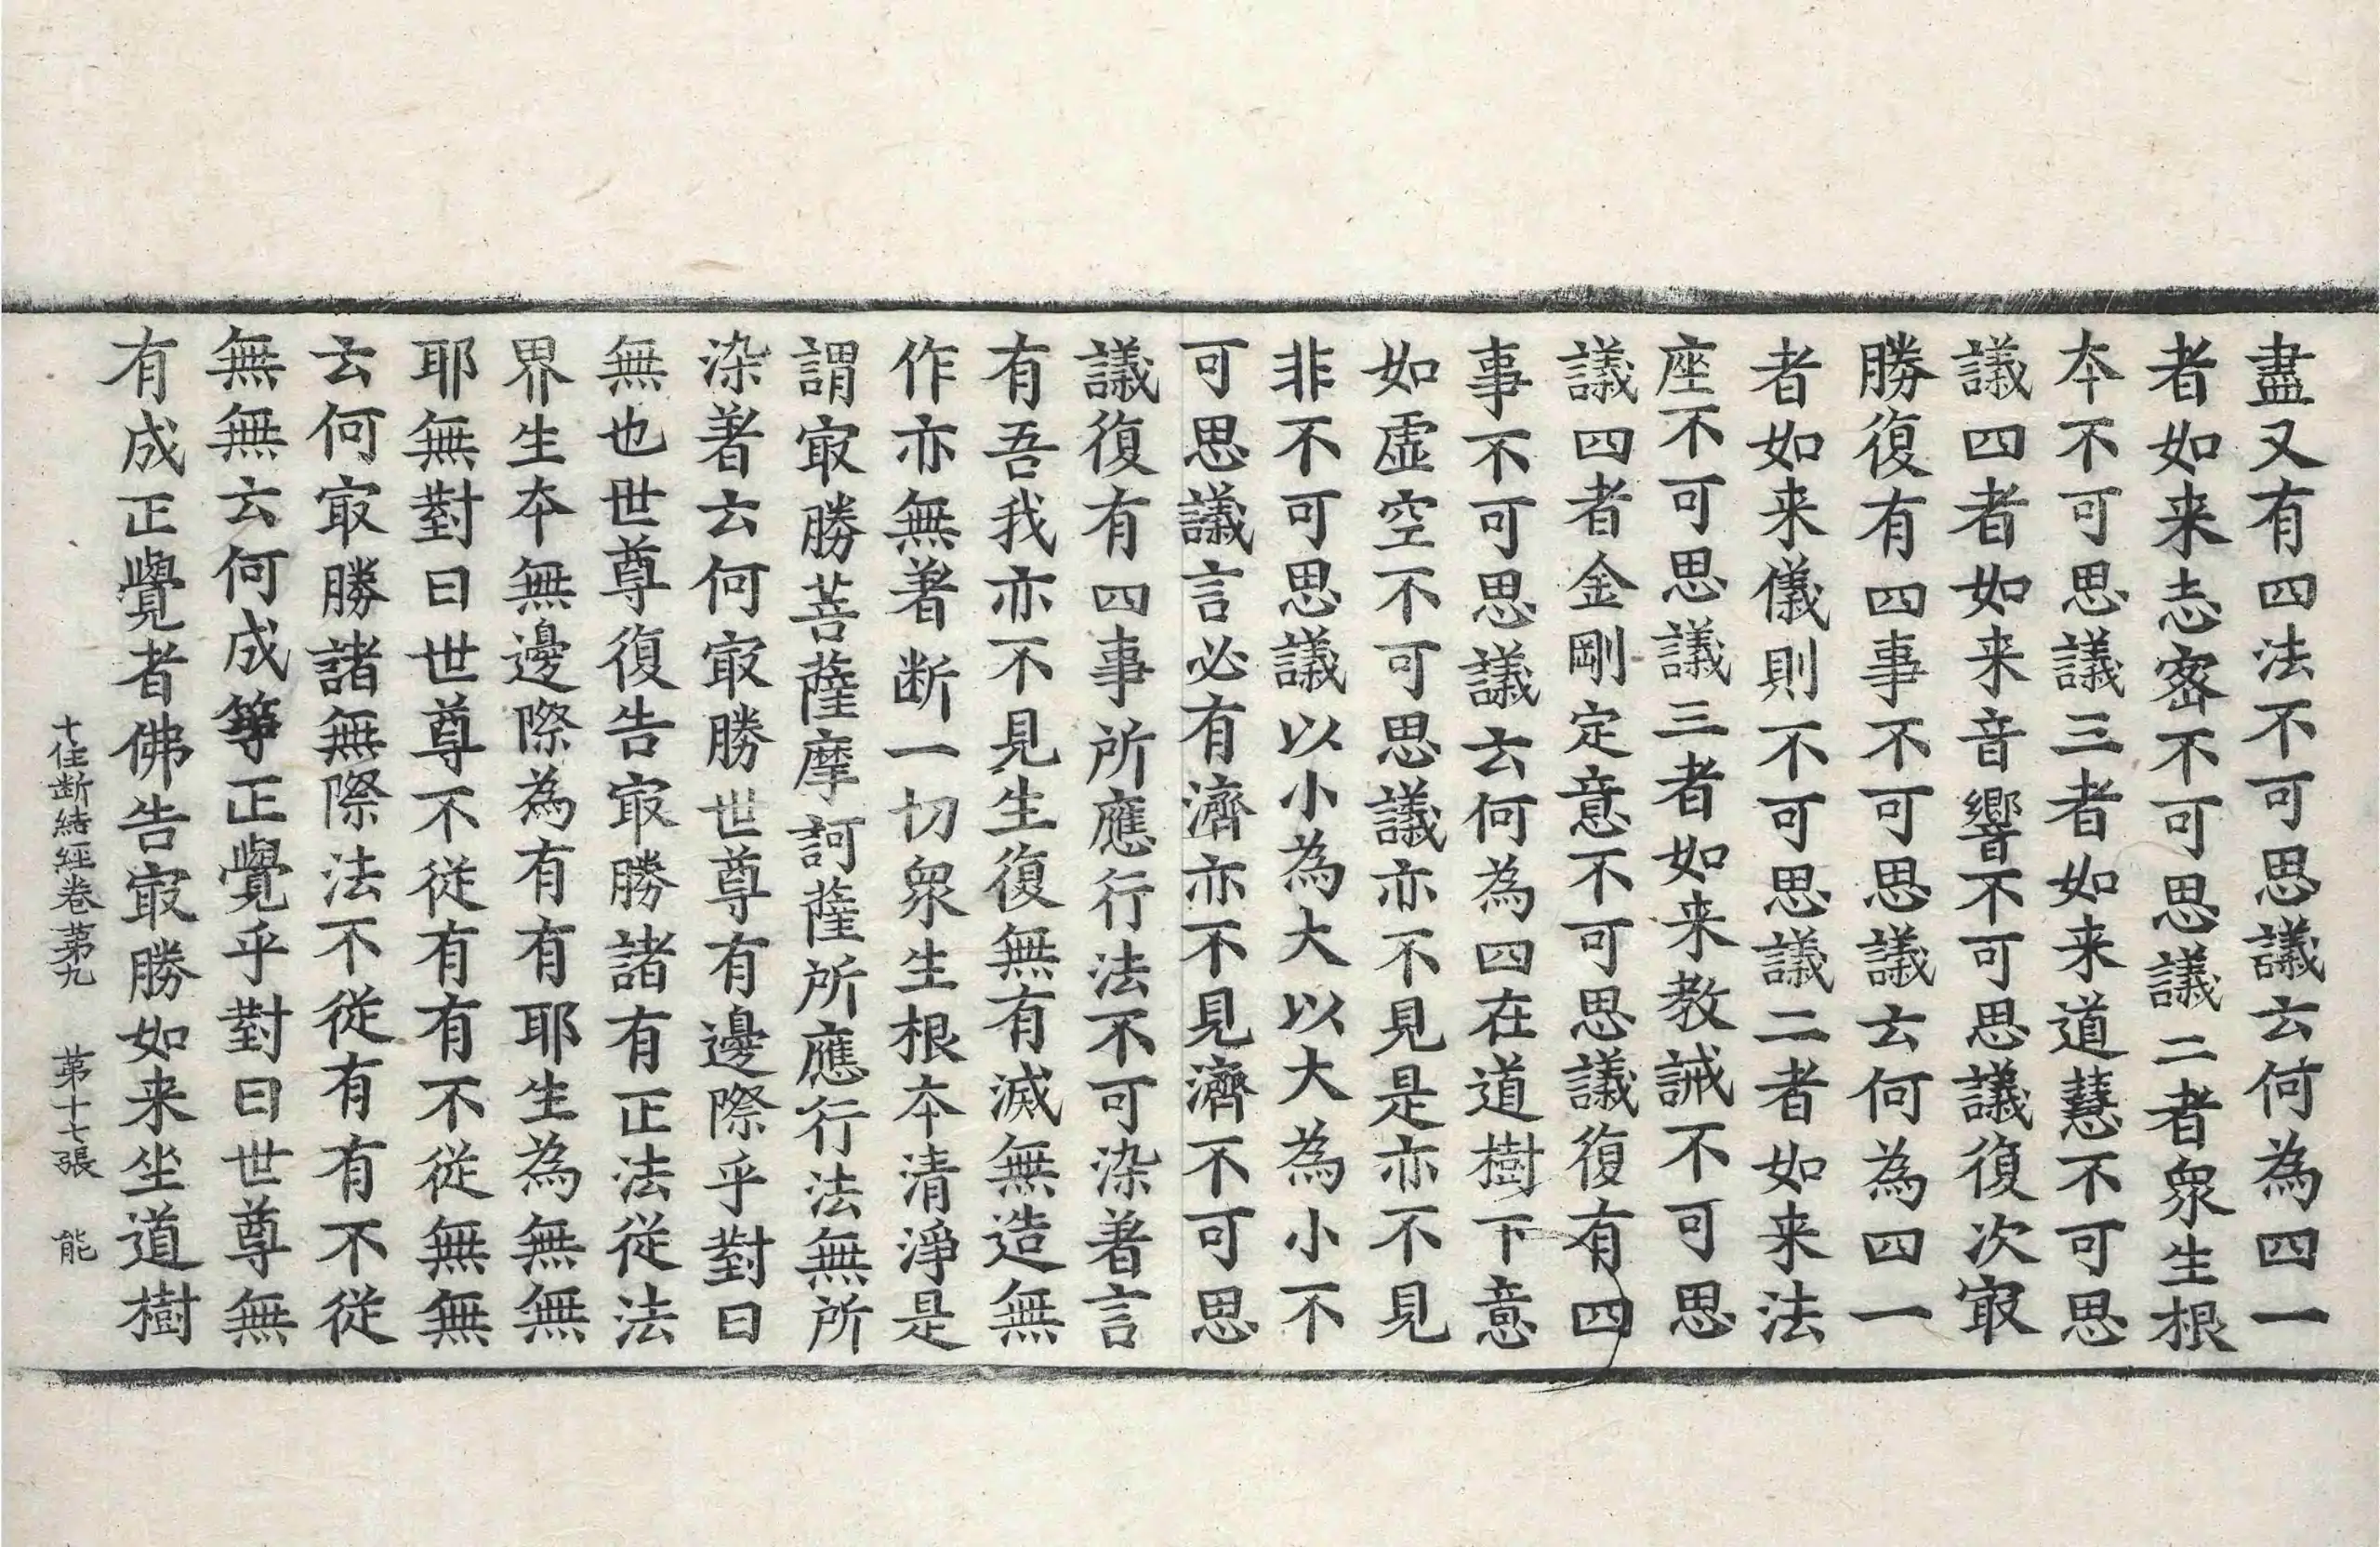 盡又有四法不可思議云何為四一
者如来志宻不可思議二者衆生根
本不可思議三者如来道慧不可思
議四者如来音響不可思議復次㝡
勝復有四事不可思議云何為四一
者如来儀則不可思議二者如来法
座不可思議三者如来教誡不可思
議四者金剛定意不可思議復有四
事不可思議云何為四在道樹下意
如虚空不可思議亦不見是亦不見
非不可思議以小為大以大為小不
可思議言必有濟亦不見濟不可思
議復有四事所應行法不可染著言
有吾我亦不見生復無有滅無造無
作亦無著断一切衆生根本清淨是
謂㝡勝菩薩摩訶薩所應行法無所
染著云何㝡勝世尊有邊際乎對曰
無也世尊復告㝡勝諸有正法従法
界生本無邊際為有有耶生為無無
耶無對曰世尊不従有有不従無無
云何㝡勝諸無際法不従有有不従
無無云何成等正覺乎對曰世尊無
有成正覺者佛告㝡勝如来坐道樹
十住断結經卷第九 第十七張 能